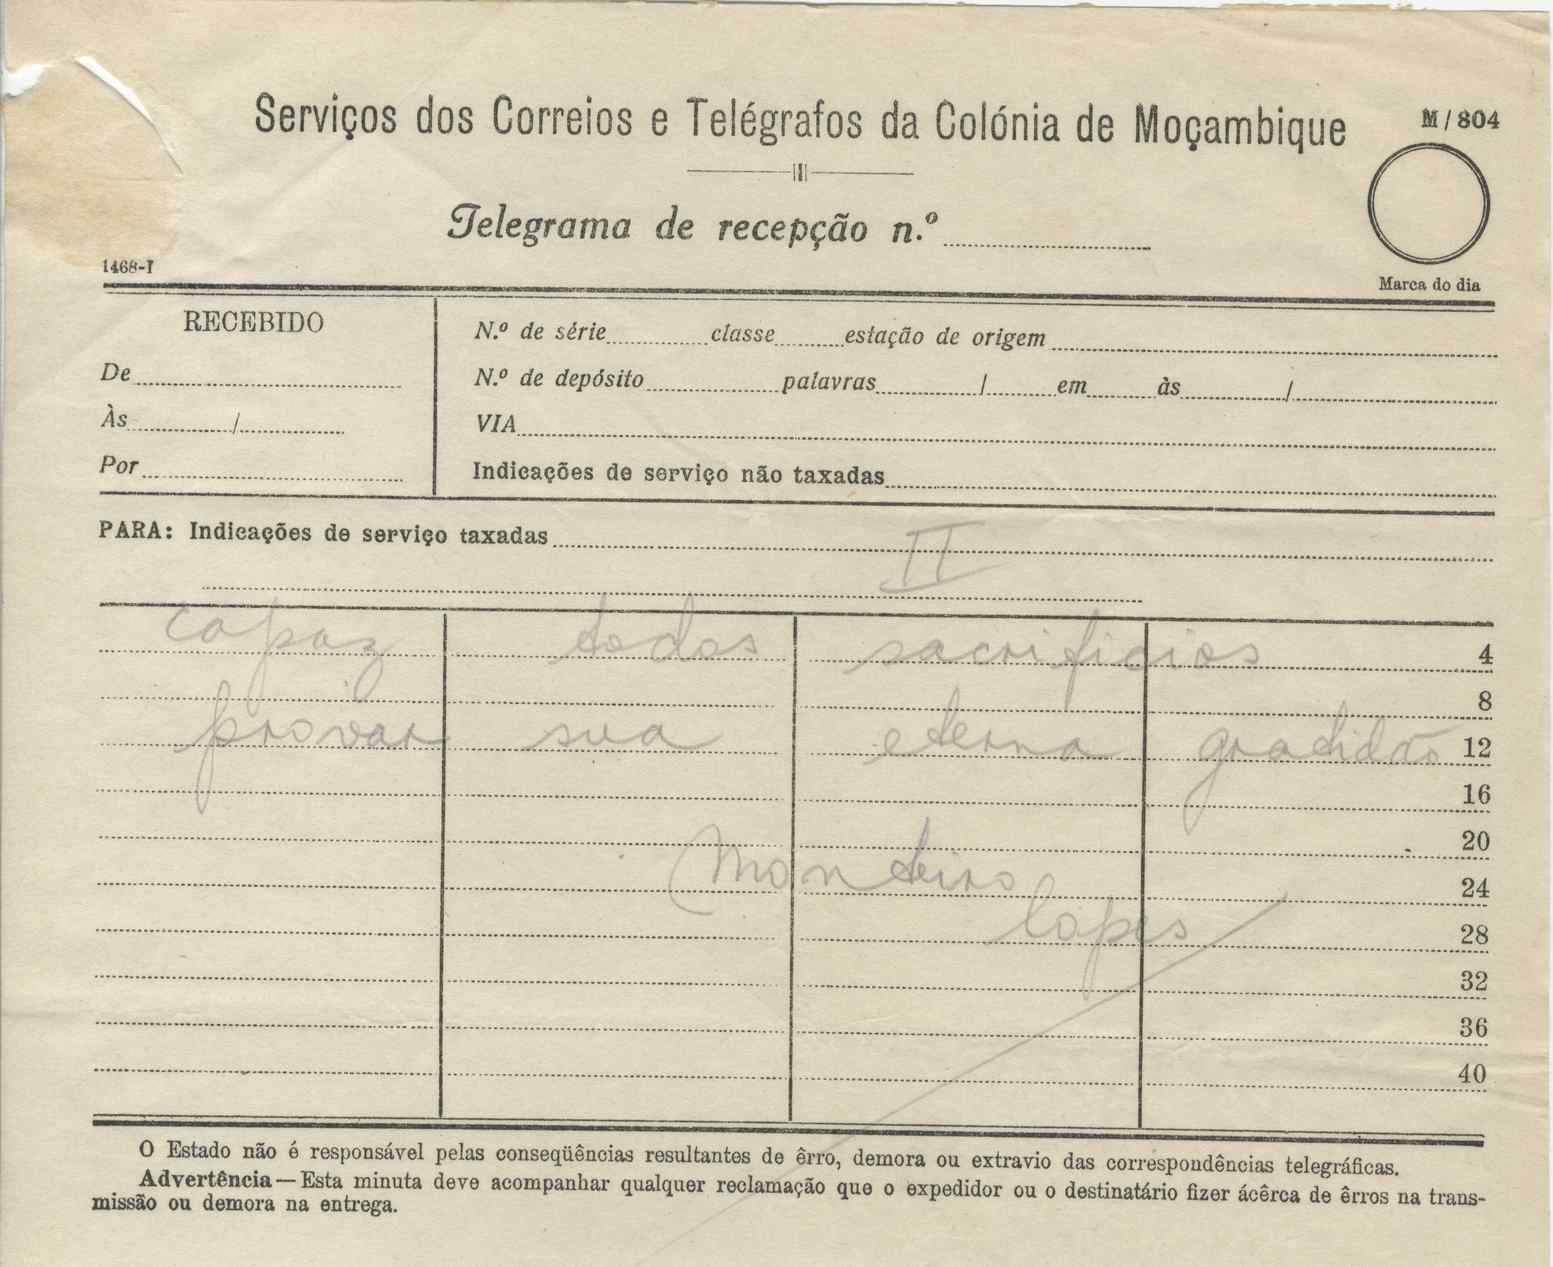 Serviços dos Correios e Telégrafos da Colónia de Moçambique
M/804
Telegrama de recepção n.º
1468-I
Marca do dia
RECEBIDO
N.º de série classe estação de origem
De
N.º de depósito palavras / em às /
Às /
VIA
Por
Indicações de serviço não taxadas
PARA: Indicações de serviço taxadas
II
capaz todos sacrificios 4
8
provar sua eterna gratidão 12
16
20
Monteiro 24
Lopes 28
32
36
40
O Estado não é responsável pelas conseqüências resultantes de êrro, demora ou extravio das correspondências telegráficas.
Advertência—Esta minuta deve acompanhar qualquer reclamação que o expedidor ou o destinatário fizer ácêrca de êrros na trans-
missão ou demora na entrega.